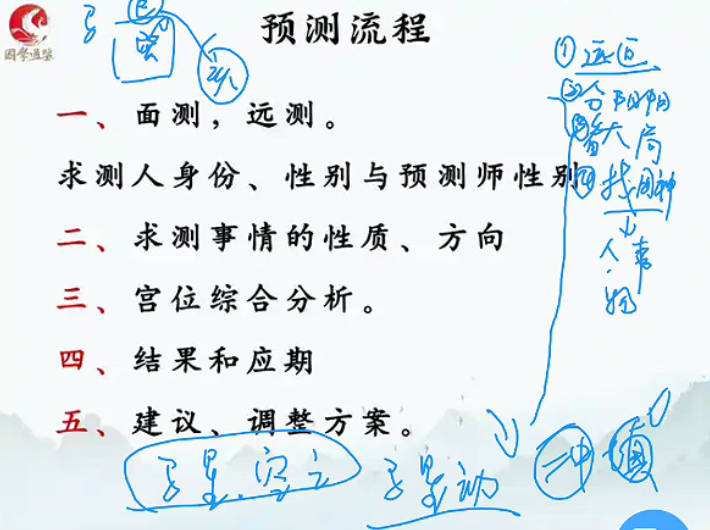 国学通鉴
预测流程
一、面测，远测。
求测人身份、性别与预测师性别
二、求测事情的性质、方向
三、宫位综合分析。
四、结果和应期
五、建议、调整方案。
① 远近
② 分阴阳
③ 看大局
④ 找用神
人·事
物